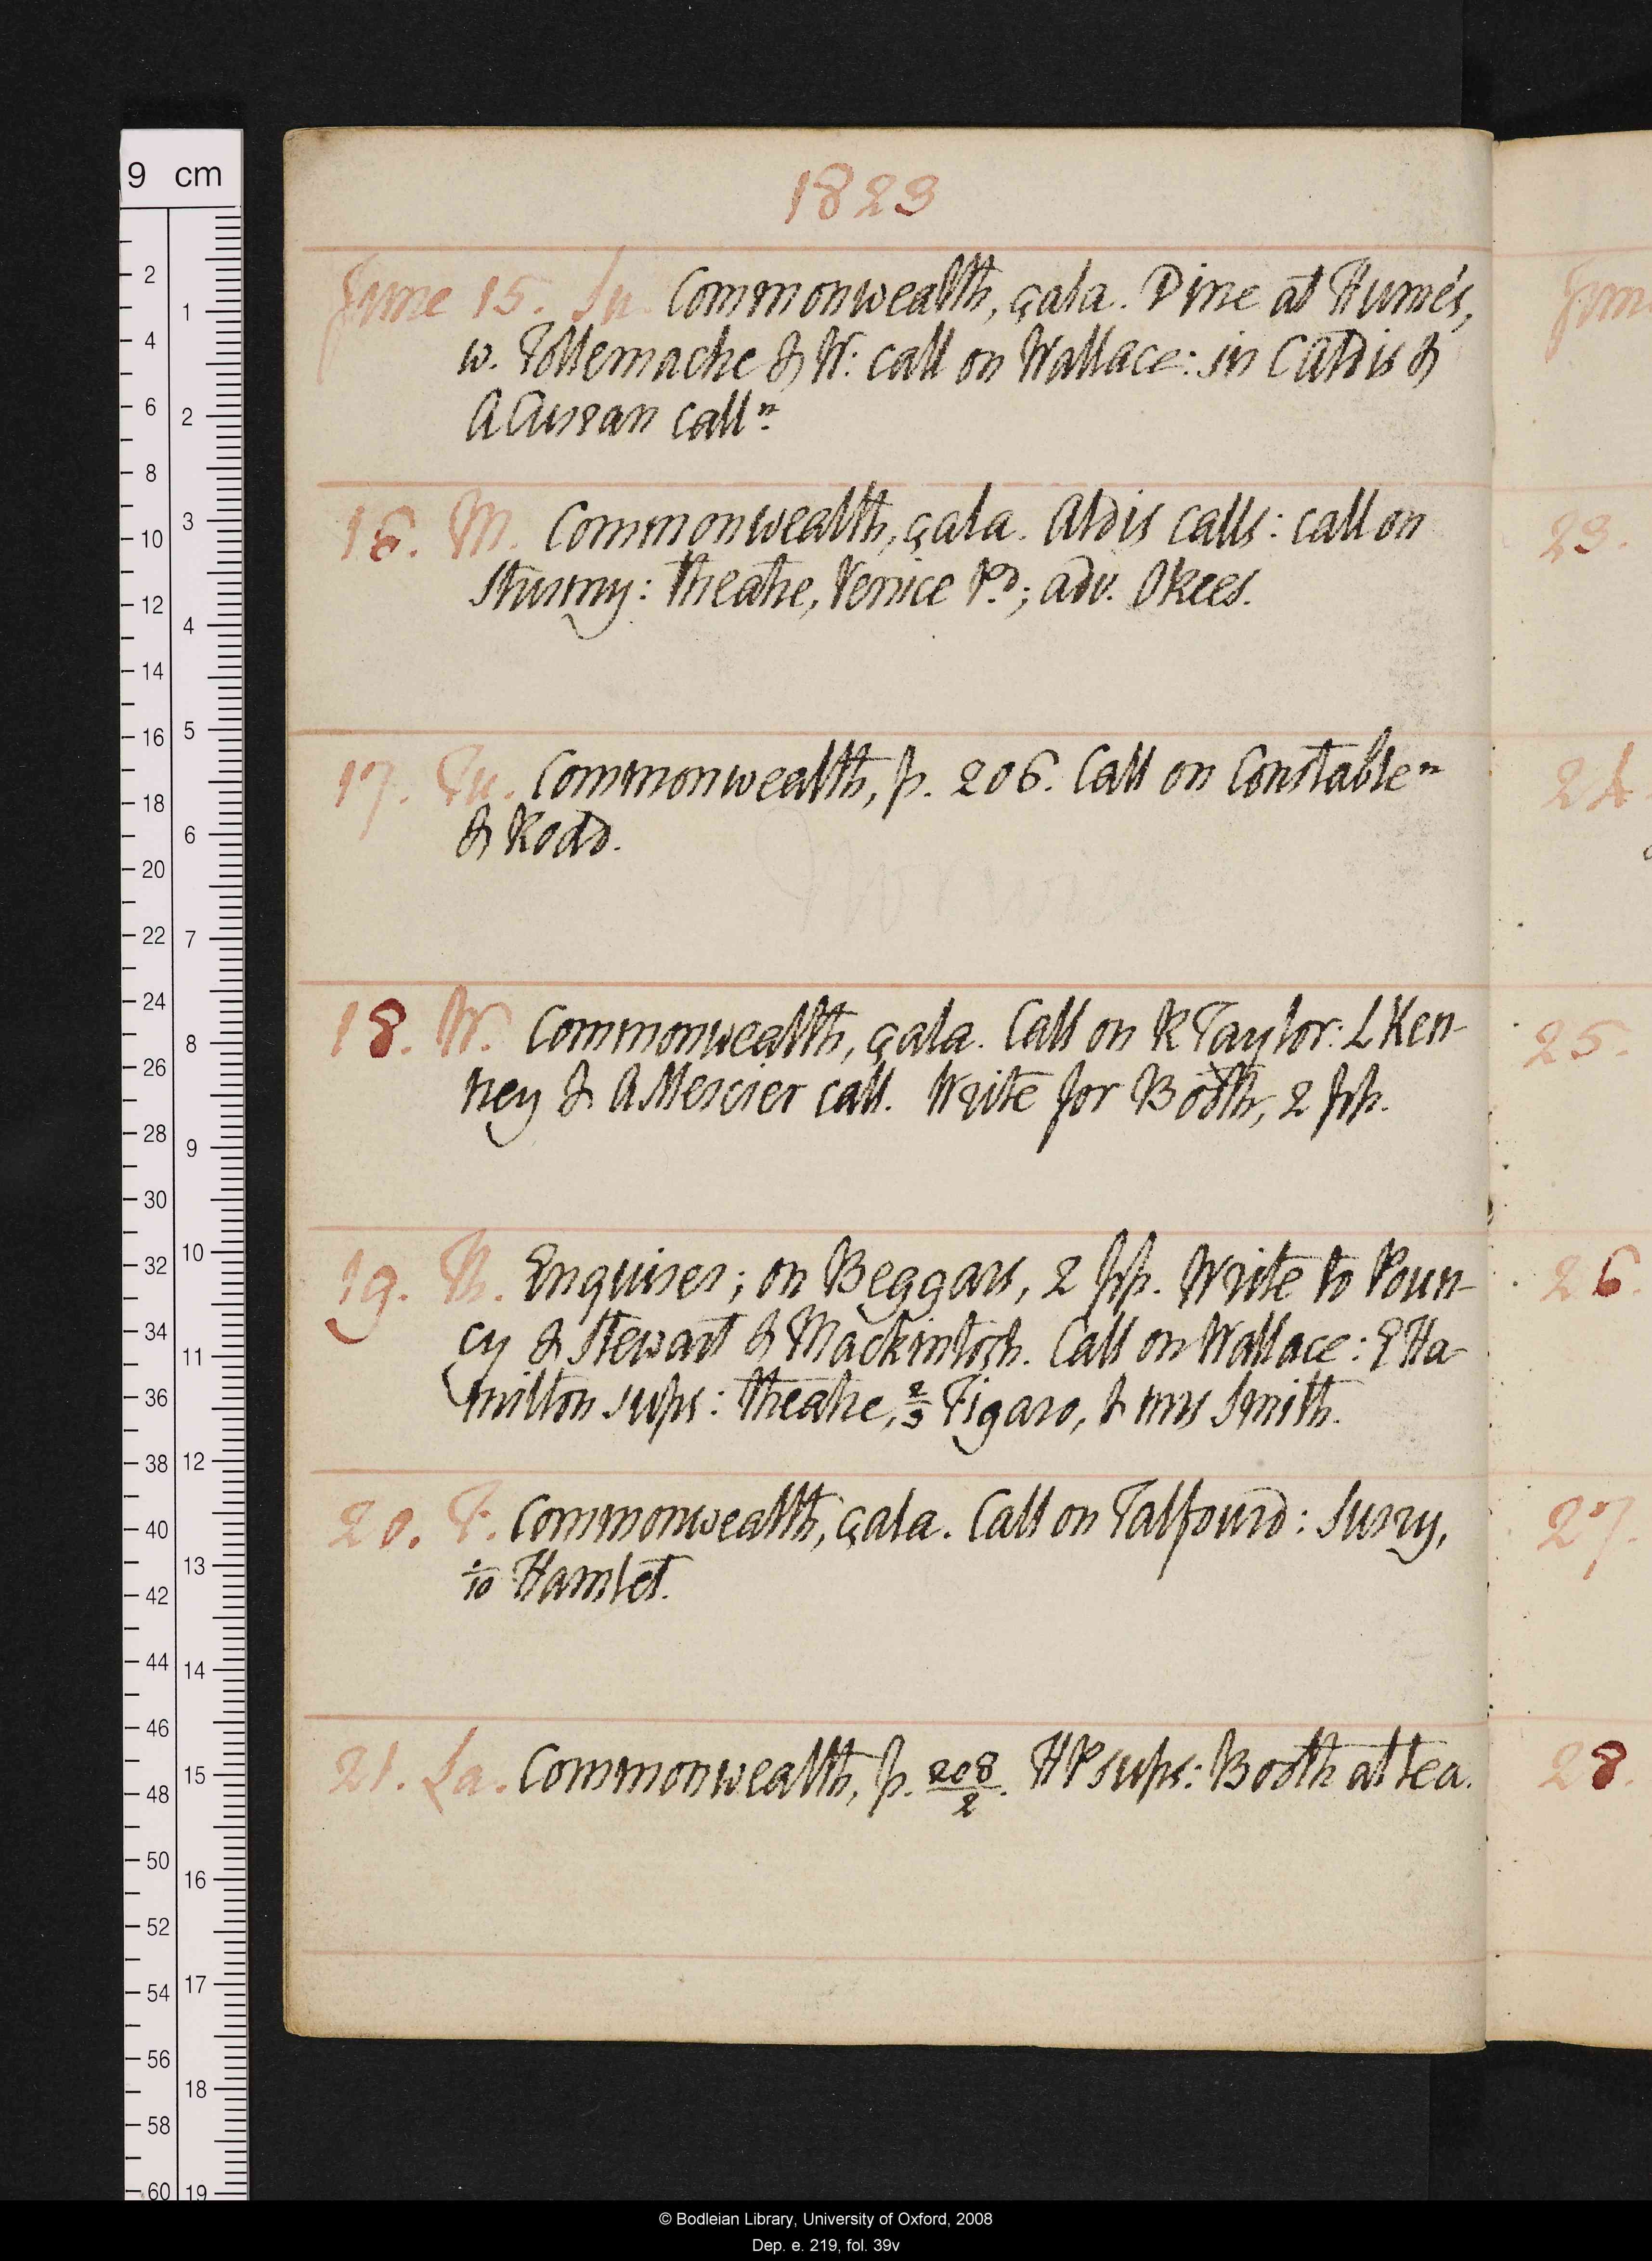 1823
June 15. Su. Commonwealth, çala. Dine at Hume's,
w. Tollemache & W: call on Wallace: in C Aldis &
A Curran calln.
16. M. Commonwealth, çala. Aldis calls: call on
Thurny: theatre, Venice Pd; adv. OKees.
17. Tu. Commonwealth, p. 206. Call on Constable n
& Rodd.
18. W. Commonwealth, çala. Call on R Taylor: L Ken-
ney & A Mercier call. Write for Booth, 2 pp.
19. Th. Enquirer; on Beggars, 2 pp. Write to Poun-
cy & Stewart & Mackintosh. Call on Wallace: E Ha-
milton sups: theatre, 2/3 Figaro, & mrs Smith.
20. F. Commonwealth, çala. Call on Talfourd: Surry,
Hamlet.
21. Sa. Commonwealth, p. 208/2. HP sups: Booth at tea.
June
23.
24
25.
26.
27.
28.
9 cm
2
4
6
8
10
12
14
16
18
20
22
24
26
28
30
32
34
36
38
40
42
44
46
48
50
52
54
56
58
60
1
2
3
4
5
6
7
8
9
10
11
12
13
14
15
16
17
18
19
© Bodleian Library, University of Oxford, 2008
Dep. e. 219, fol. 39v